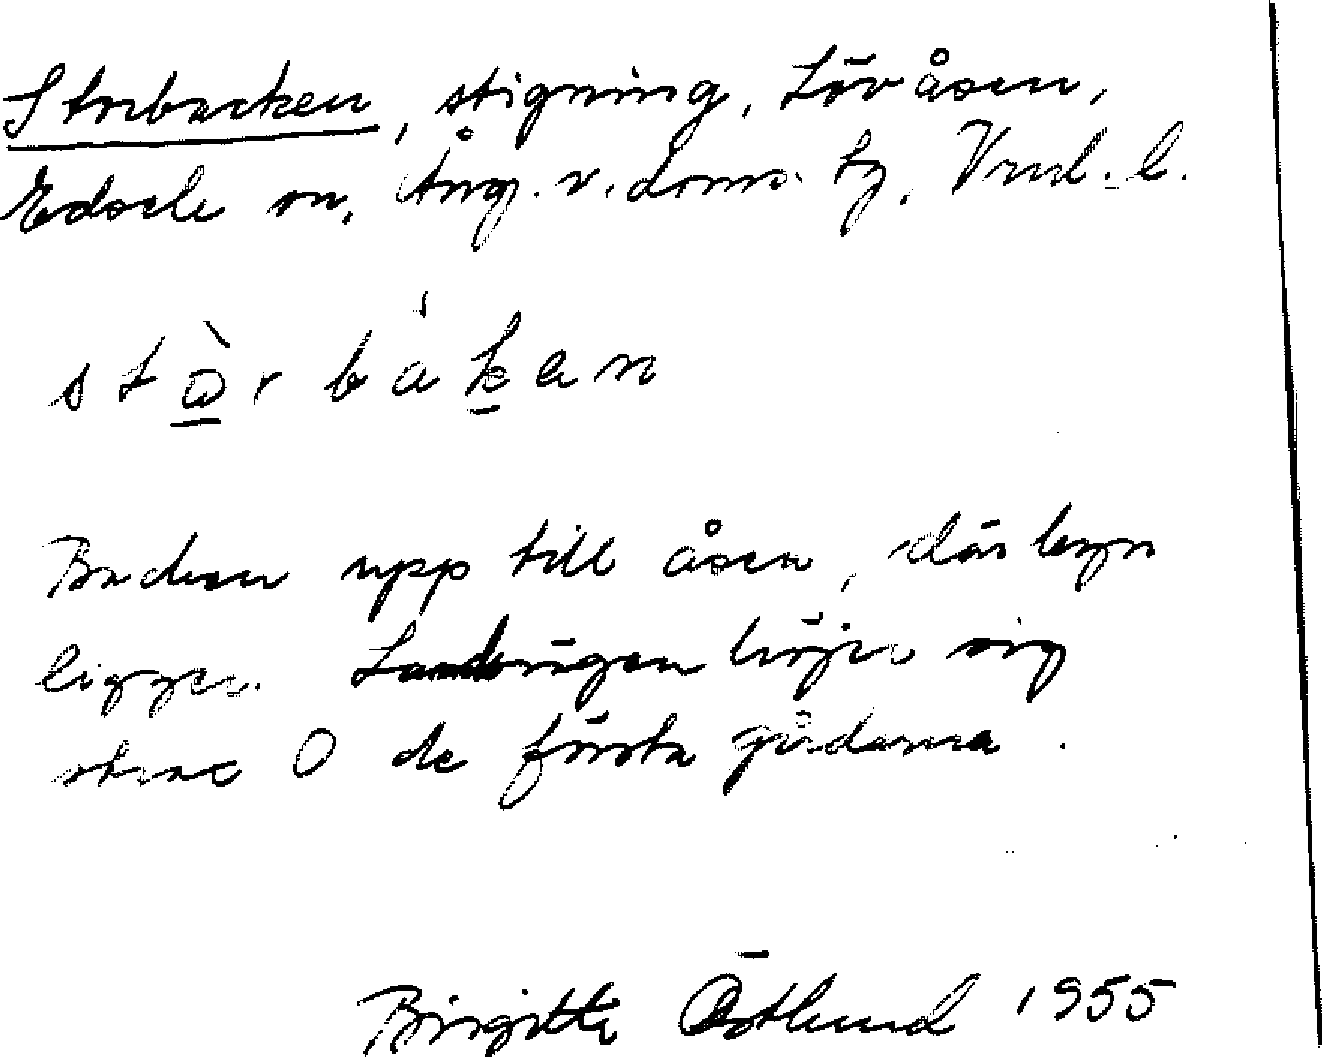 Storbacken, stigning, Lövåsen,
Edsele sn, Ång. v. doms. tg, Vnl. l.
stò̱rbáḵan
Backen upp till åsen, där byn
ligger. Landsvägen höjer sig
strax O de första gårdarna.
Birgitta Östlund 1955